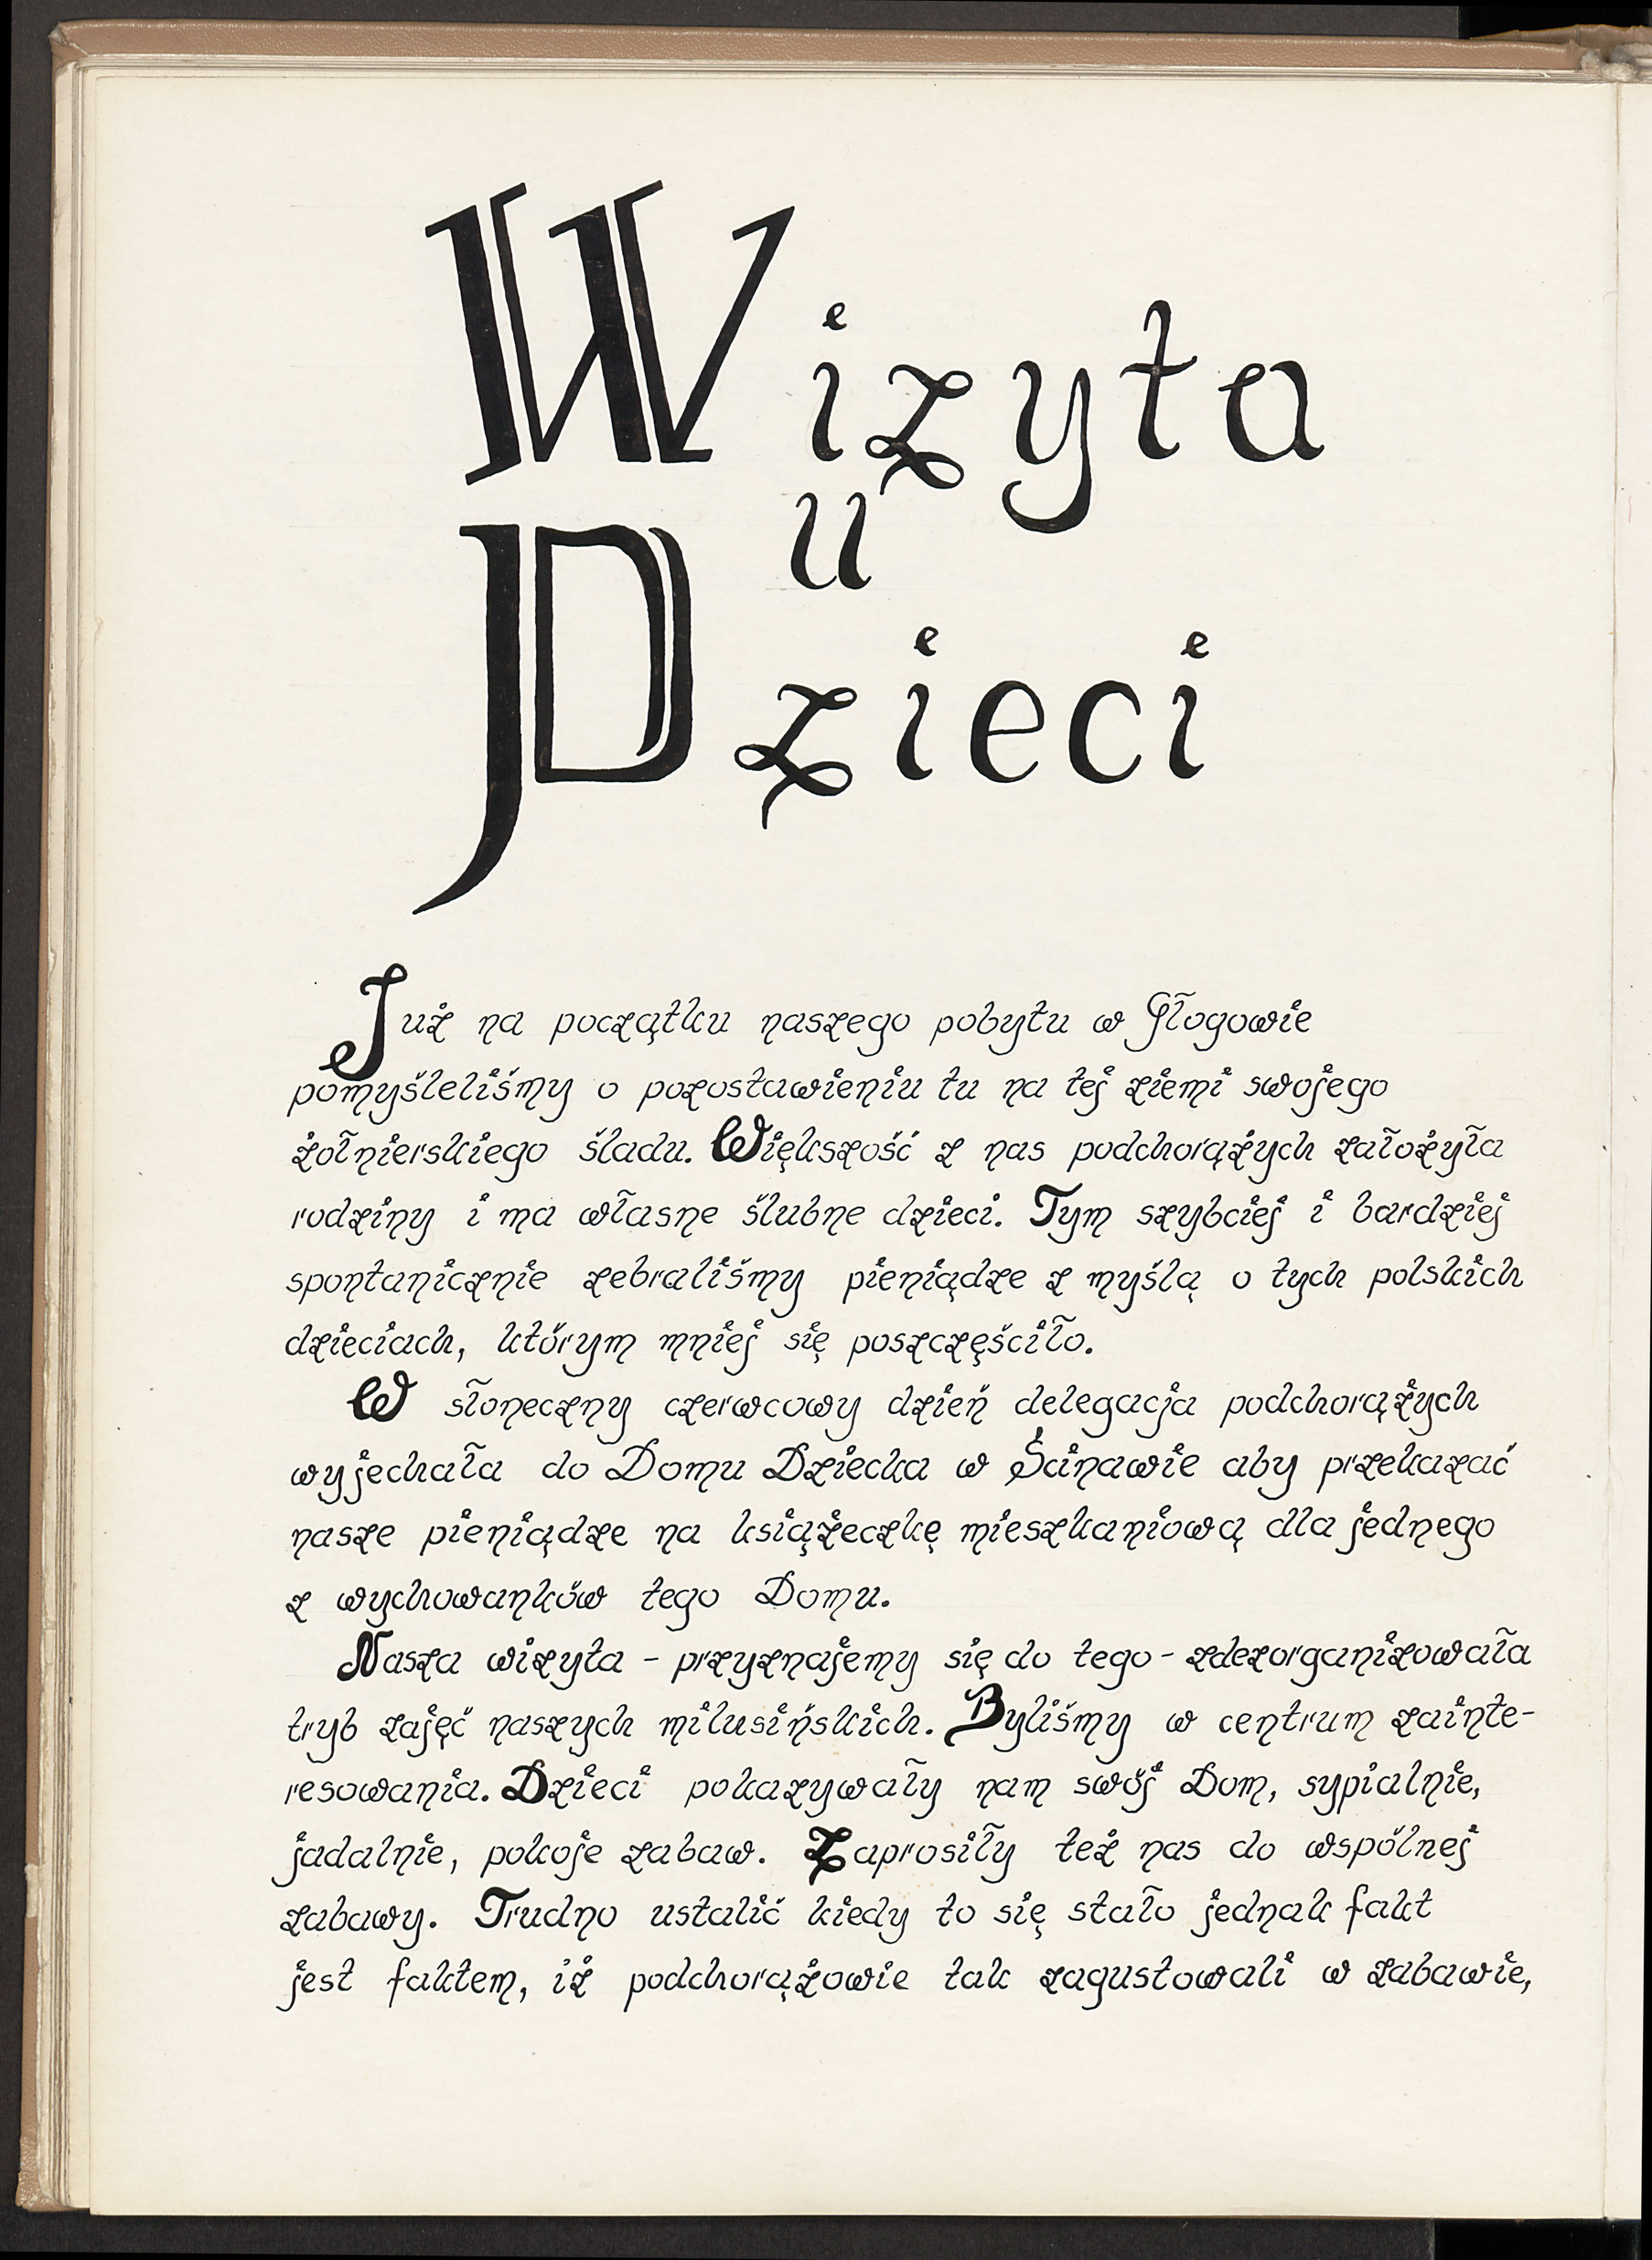 Wizyta
u
Dzieci
Już na początku naszego pobytu w Głogowie
pomyśleliśmy o pozostawieniu tu na tej ziemi swojego
żołnierskiego śladu. Większość z nas podchorążych założyła
rodziny i ma własne ślubne dzieci. Tym szybciej i bardziej
spontanicznie zebraliśmy pieniądze z myślą o tych polskich
dzieciach, którym mniej się poszczęściło.
W słoneczny czerwcowy dzień delegacja podchorążych
wyjechała do Domu Dziecka w Ścinawie aby przekazać
nasze pieniądze na książeczkę mieszkaniową dla jednego
z wychowanków tego Domu.
Nasza wizyta - przyznajemy się do tego - zdezorganizowała
tryb zajęć naszych milusińskich. Byliśmy w centrum zainte-
resowania. Dzieci pokazywały nam swój Dom, sypialnie,
jadalnie, pokoje zabaw. Zaprosiły też nas do wspólnej
zabawy. Trudno ustalić kiedy to się stało jednak fakt
jest faktem, iż podchorążowie tak zagustowali w zabawie,